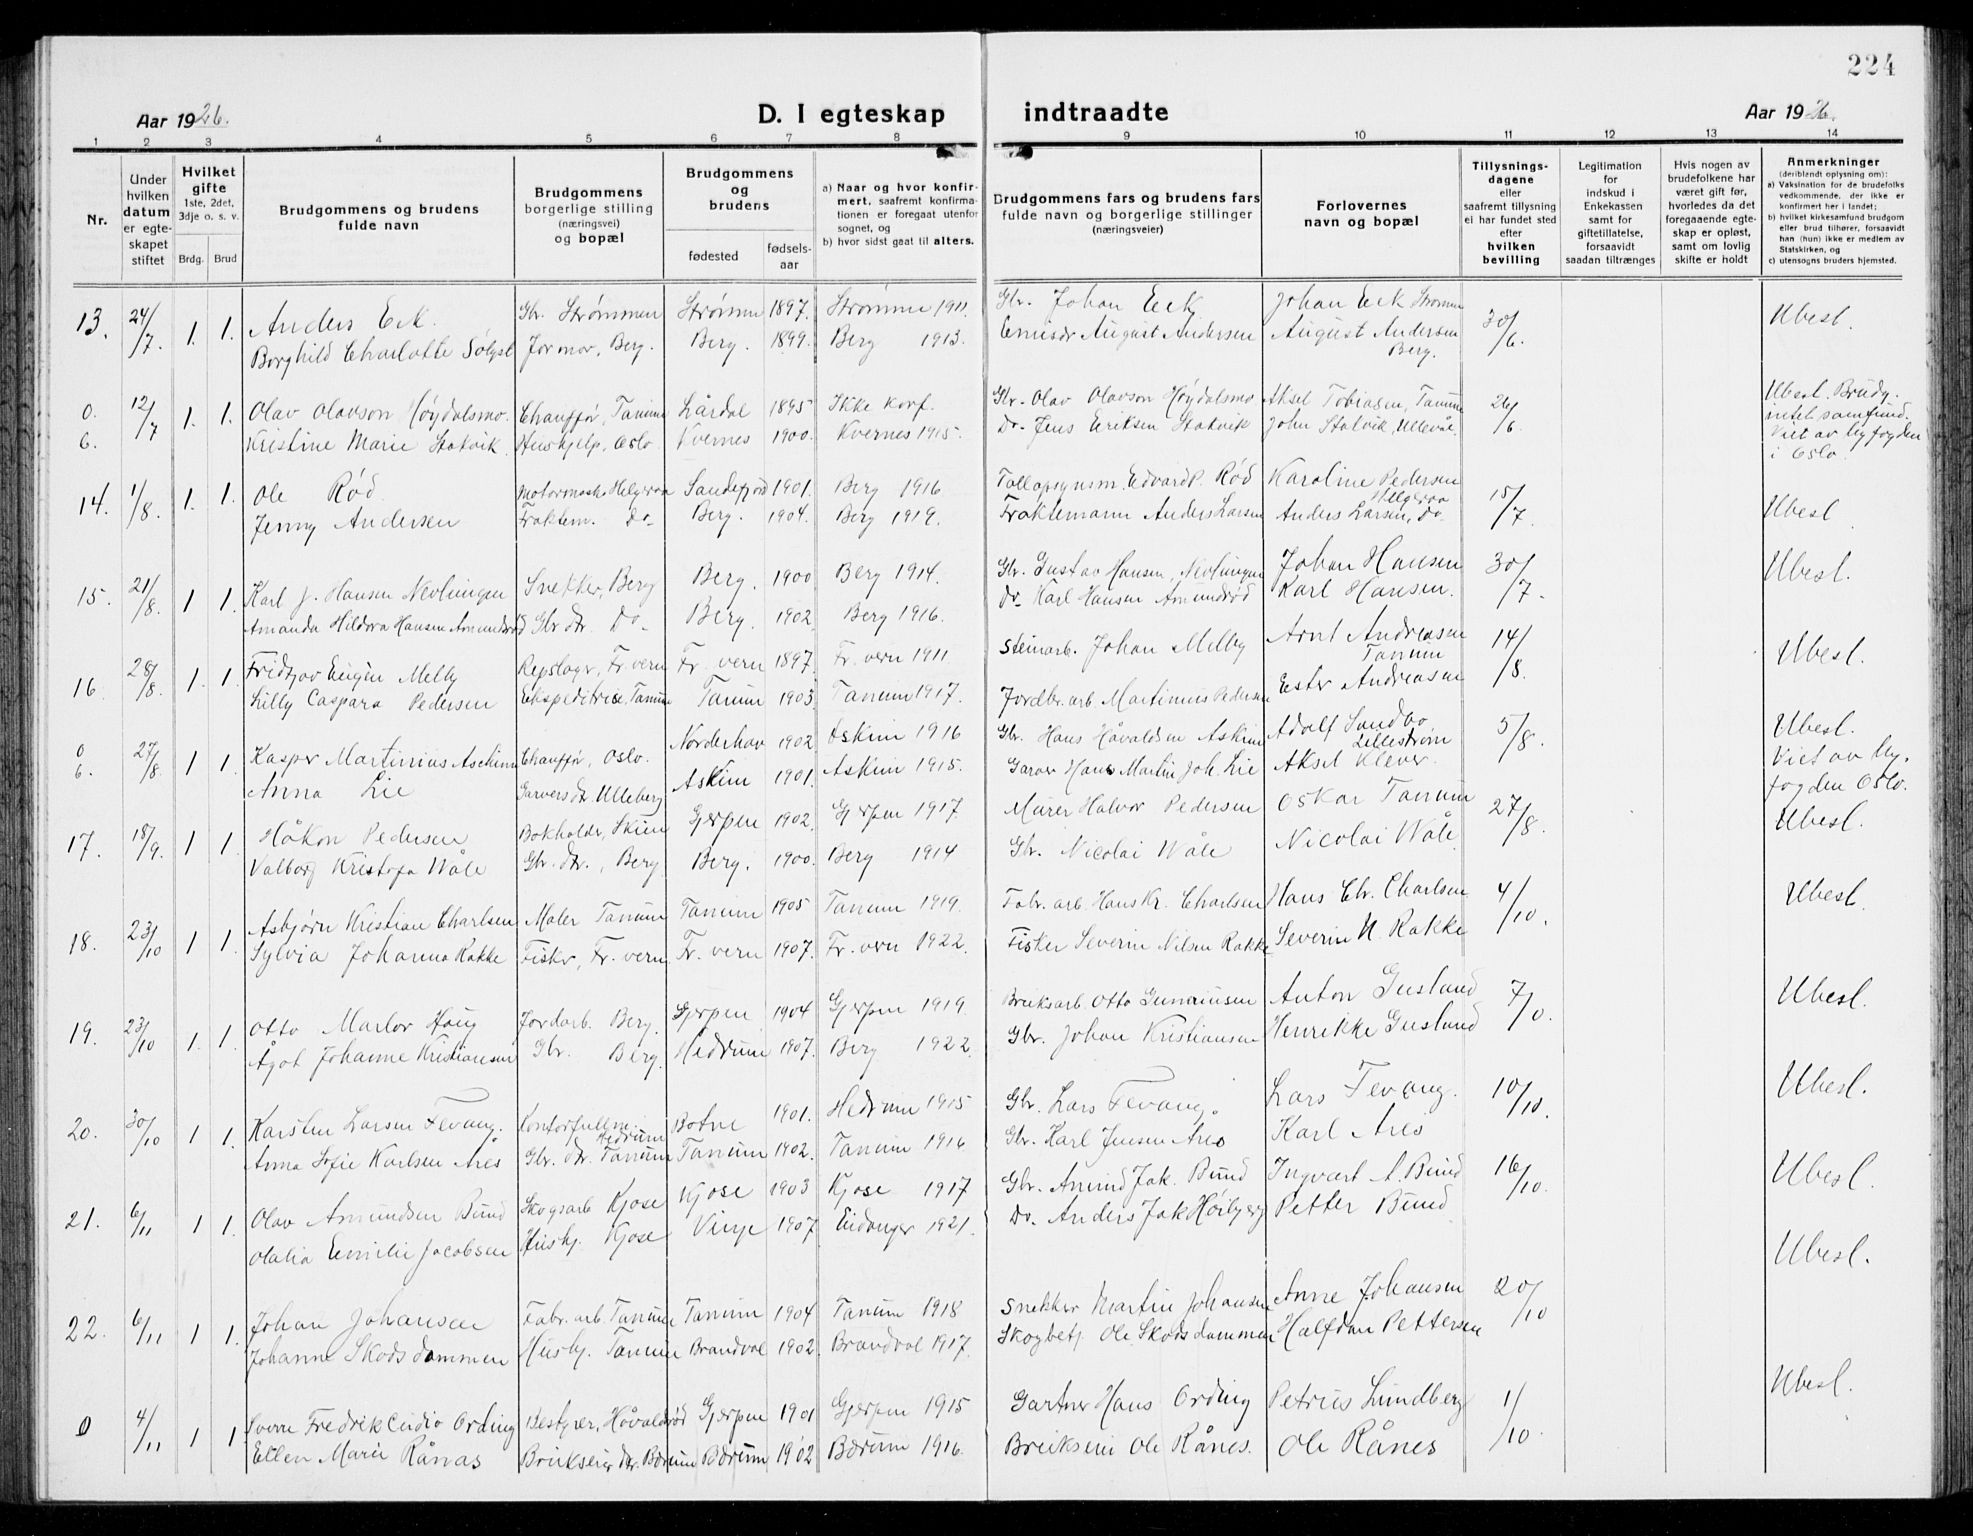 224
Aar 1926. D. I egteskap indtraadte Aar 1926.
1 2 3 4 5 6 7 8 9 10 11 12 13 14
Nr.
Under hvilken datum er egteskapet stiftet
Hvilket gifte 1ste, 2det, 3dje o. s. v. Brdg. Brud
Brudgommens og brudens fulde navn
Brudgommens borgerlige stilling (næringsvei) og bopæl
Brudgommens og brudens fødested fødsels-aar
a) Naar og hvor konfirmert, saafremt konfirmationen er foregaat utenfor sognet, og
b) hvor sidst gaat til alters.
Brudgommens fars og brudens fars fulde navn og borgerlige stillinger (næringsveier)
Forlovernes navn og bopæl
Tillysningsdagene eller saafremt tillysning ei har fundet sted efter hvilken bevilling
Legitimation for indskud i Enkekassen samt for giftetillatelse, forsaavidt saadan tiltrænges
Hvis nogen av brudefolkene har været gift før, hvorledes da det foregaaende egteskap er opløst, samt om lovlig skifte er holdt
Anmerkninger (deriblandt oplysning om):
a) Vaksination for de brudefolks vedkommende, der ikke er konfirmert her i landet;
b) hvilket kirkesamfund brudgom eller brud tilhører, forsaavidt han (hun) ikke er medlem av Statskirken, og
c) utensogns bruders hjemsted.
13. 24/7. 1. 1. Anders Eek. Gbr. Strømmen Strømm 1897. Strømm 1911. Gbr. Johan Eek Johan Eek Strømm 30/6. Ubesl.
Borghild Charlotte Berg. Berg. 1899. Berg 1913. August Andersen August Andersen Berg.
0. 6. 12/7 1. 1. Olav Olavson Høydalsmo. Chauffør, Tanum Lårdal 1895 Ikke konf. Gbr. Olav Olavson Høydalsmo Aksel Tobiasen, Tanum 26/6. Ubesl. Brudg. intet samfund.
Kristine Marie Stokvik Hushjelp, Oslo Kvernes 1900. Kvernes 1915. Do. Jens Eriksen Stokvik John Stokvik, Ullevål. Viet av byfogden i Oslo.
14. 1/8. 1. 1. Ole Rød Helgeroa Sandefjord 1901. Berg 1916. Edvard P. Rød Karoline Pedersen Helgeroa 15/7. Ubesl.
Jenny Andersen Fraktem. Do- Berg. 1904. Berg 1919. Fraktemann Anders Larsen Anders Larsen, Do-
15. 21/8. 1 1. Karl J. Hansen Nevlungen Snekker, Berg Berg. 1900 Berg 1914. Gbr. Gustav Hansen, Nevlungen Johan Hansen 30/7. Ubesl.
Amanda Hildora Hansen Amundrød Gbr. dtr. Do- Berg. 1902 Berg 1916. Do- Karl Hansen Amundrød Karl Hansen.
16. 28/8. 1. 1. Fridtjov Eugen Melby Repslager, Fr. vern Fr. vern 1897. Fr. vern 1911. Steinarb. Johan Melby Arnt Andreasen Tanum 14/8. Ubesl.
Lilly Caspara Pedersen Ekspeditrise, Tanum Tanum 1903 Tanum 1917. Jordbr. arb. Martinius Pedersen Ester Andreasen
0 6. 27/8. 1 1. Kasper Martinius Aschim Chauffør, Oslo. Norderhov 1902 Askim 1916 Gbr. Hans Håvaldsen Askim Adolf Sandbo Lillestrøm 5/8. Ubesl.
Anna Lie Garvers dtr. Ulleberg Askim 1901. Askim 1915. Garver Hans Martin Joh. Lie Aksel Klever. Viet av byfogden Oslo.
17. 18/9. 1 1 Håkon Pedersen Bokholder, Skien Gjerpen 1902. Gjerpen 1917. Murer Halvor Pedersen Oskar Tanum 27/8. Ubesl.
Valborg Kristofa Wåle Gbr. dtr., Berg Berg. 1900. Berg 1914 Gbr. Nicolai Wåle Nicolai Wåle
18. 23/10 1 1 Asbjørn Kristian Charlsen Maler Tanum Tanum 1905 Tanum 1919. Fabr. arb. Hans Kr. Charlsen Hans Chr. Charlsen 4/10. Ubesl.
Sylvia Johanna Rakke Fisker, Fr. vern Fr. vern 1907. Fr. vern 1922. Fisker Severin Nilsen Rakke Severin N. Rakke
19. 23/10 1. 1. Otto Marlov Haug Jordarb. Berg. Gjerpen 1904 Gjerpen 1919. Bruksarb. Otto Gunnriusen Anton Guslund 7/10. Ubesl.
Ågot Johanne Kristiansen Gbr. Berg Hedrum 1907. Berg 1922. Gbr. Johan Kristiansen Henrikke Guslund
20. 30/10 1 1. Karsten Larsen Tevang. Hedrum Botne 1901. Hedrum 1915 Gbr. Lars Tevang. Lars Tevang. 10/10. Ubesl.
Anna Sofie Karlsen Ares Gbr. dtr. Tanum Tanum 1902. Tanum 1916 Gbr. Karl Jensen Ares Karl Ares
21. 6/11 1 1. Olav Amundsen Bund Skogsarb Kjose Kjose 1903 Kjose 1917 Gbr. Amund Jak. Bund Ingvart A. Bund 16/10. Ubesl.
Olalia Emilie Jacobsen Hushj. Kjose 1907 Eidanger 1921. Do. Anders Jak Høibjerg Petter Bund
22. 6/11 1 1. Johan Johansen Fabr. arb. Tanum Tanum 1904 Tanum 1918 Snekker Martin Johansen Anne Johansen 20/10 Ubesl.
Johanne Skodsdammen Hushj. Tanum Brandval 1902. Brandval 1917. Ole Skodsdammen Halfdan Pettersen
0 4/11 1 1 Sverre Fredrik Ording Bestyrer, Håvaldsrød Gjerpen 1901 Gjerpen 1915 Gartner Hans Ording Petrus Lundberg 1/10. Ubesl.
Ellen Marie Rånås Brukseier dtr. Bærum Bærum 1902 Bærum 1916. Brukseier Ole Rånes. Ole Rånes